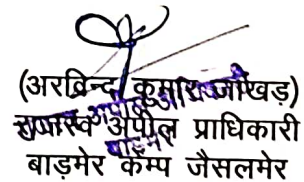 (अरविन्द कुमार जाखड़)
राजस्व अपील प्राधिकारी
बाड़मेर कैम्प जैसलमेर